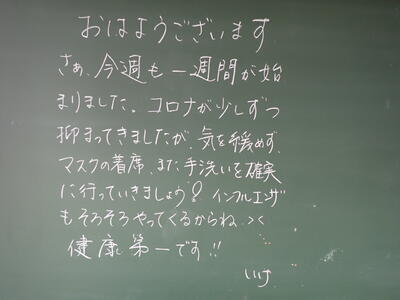 おはようございます
さぁ、今週も一週間が始
まりました。コロナが少しずつ
抑まってきましたが、気を緩めず、
マスクの着席、また手洗いを確実
に行っていきましょう！インフルエンザ
もそろそろやってくるからね ><
健康第一です!!